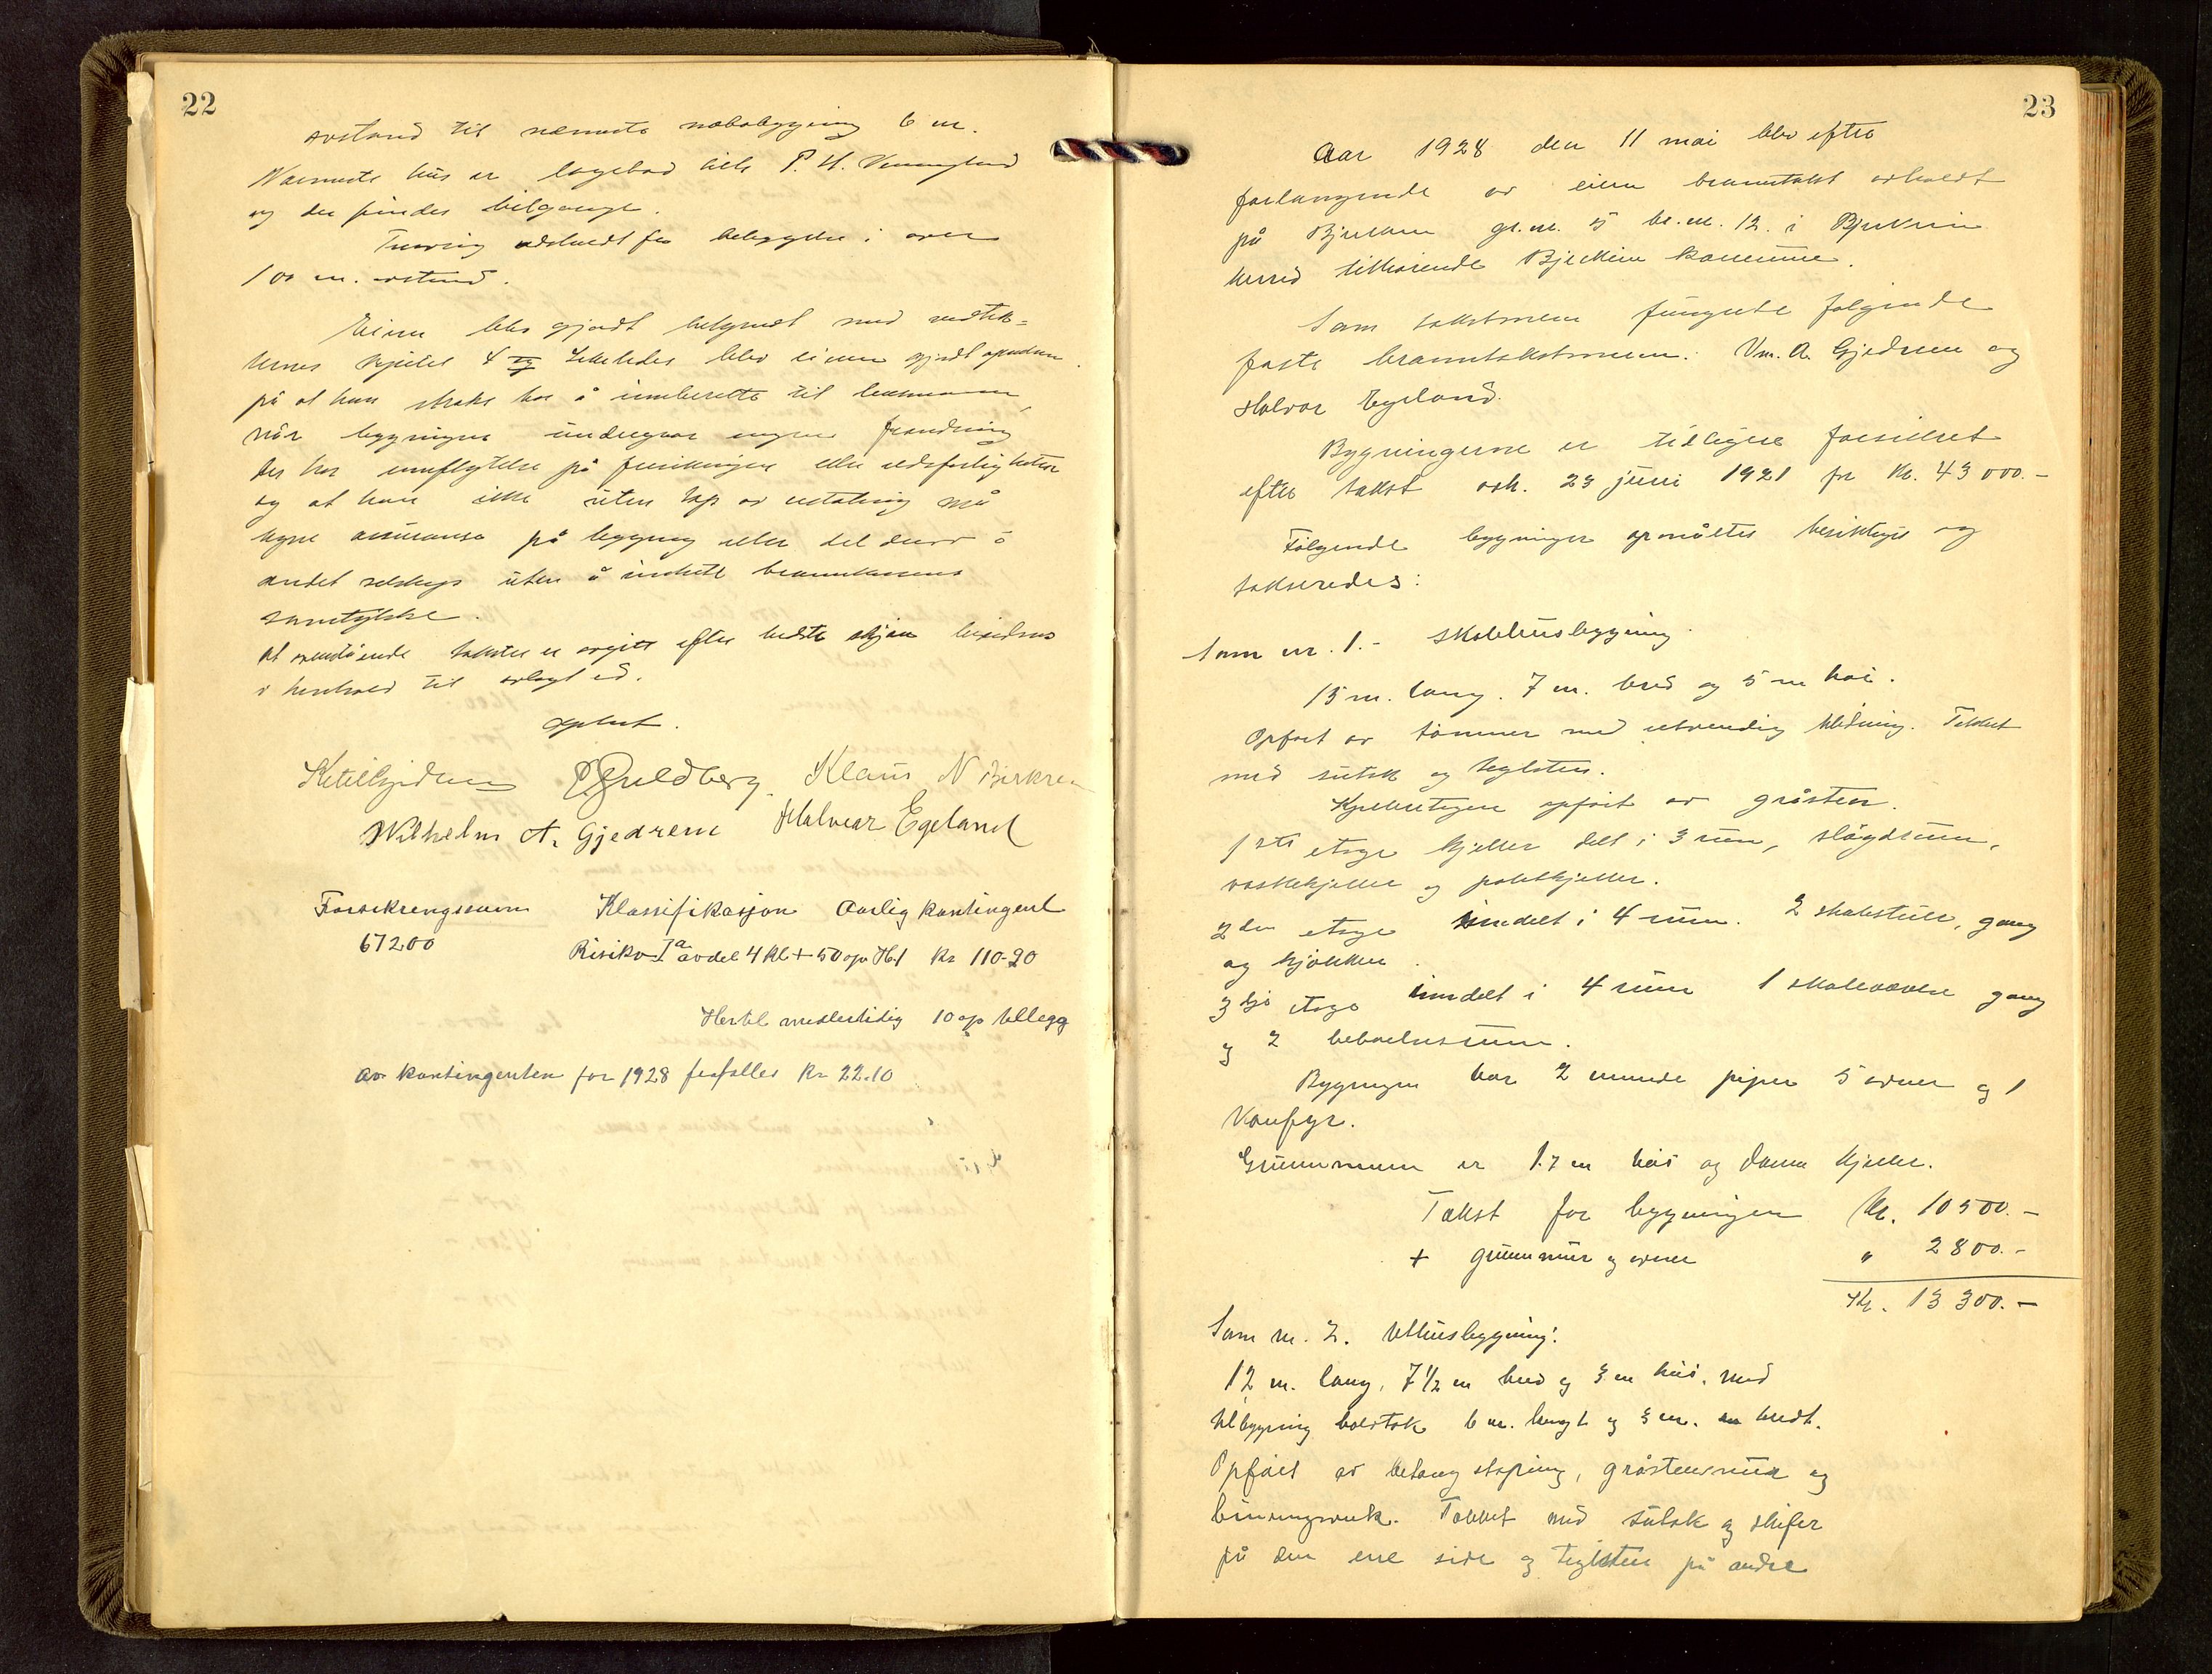 22
avstand til nærmeste nabobygging 6 m.
Nærmeste hus er P. H.
og der findes
for bebyggelse i over
100 m. avstand.
Eieren blev gjordt bekjendt med vedtek=
ternes kapitel 4 og blev eieren gjordt opmerksom
på at han straks har å innberette til lensmannen,
når bygningene undergår nogen forandring
der har innflytelse på forsikringen eller
og at han ikke uten tap av erstatning må
tegne assuranse på bygning eller del derav i
andet selskap uten å innhente brannkassens
samtykke.
At ovenstående takster er avgitt efter bedste skjøn
i henhold til avlagt ed.
Oplest.
Ketil Gjedrem Guldberg. Klaus N Bjerkrem
Wilhelm A. Gjedrem Halvar Egeland
Forsikringssum Klassifikasjon Aarlig kontingent
67200 Risiko Ia avdel 4 kl + 50 op Kr 110-20
Hertil midlertidig 10 op tillegg
Av kontingenten for 1928 frafalles Kr 22.10
23
Aar 1928 den 11 mai blev efter
forlangende av eieren branntakst avholdt
på Bjerkrem gr.nr. 5 br.nr. 12. i Bjerkreim
herred tilhørende Bjerkreim kommune.
Som takstmenn fungerte følgende
faste branntakstmenn: Vm. A. Gjedrem og
Halvar Egeland.
Bygningerne er tidligere forsikret
efter takst avh. 23 juni 1921 for Kr. 43 000.-
Følgende bygninger opmåltes besiktiges og
takseredes:
Som nr. 1.- Skolehusbygning.
15 m. lang. 7 m. bred og 5 m høi.
Opført av tømmer med utvendig kledning. Tekket
med sutak og teglsten.
Kjelleretagen opført av gråsten.
1ste etage kjeller delt i 3 rum, slöydrum,
vaskekjeller og potetkjeller.
2den etage inndelt i 4 rum. 2 skolestuer, gang
og kjøkken.
3dje etage inndelt i 4 rum 1 skoleværelse gang
og 2 beboelsesrum.
Bygningen har 2 murede piper 5 ovner og 1
komfyr.
Grunnmuren er 1.7 m høi og danner kjeller.
Takst for bygningen Kr. 10 500.-
+ grunnmur og ovner " 2 800.-
Kr. 13 300.-
Som nr. 2. Uthusbygning:
12 m. lang, 7 1/2 m bred og 3 m høi, med
tilbygning 6 m. langt og 3 m. bredt.
Opført av betong støpning, gråstensmur og
bindingsverk. Tekket med sutak og skifer
på den ene side og teglsten på andre